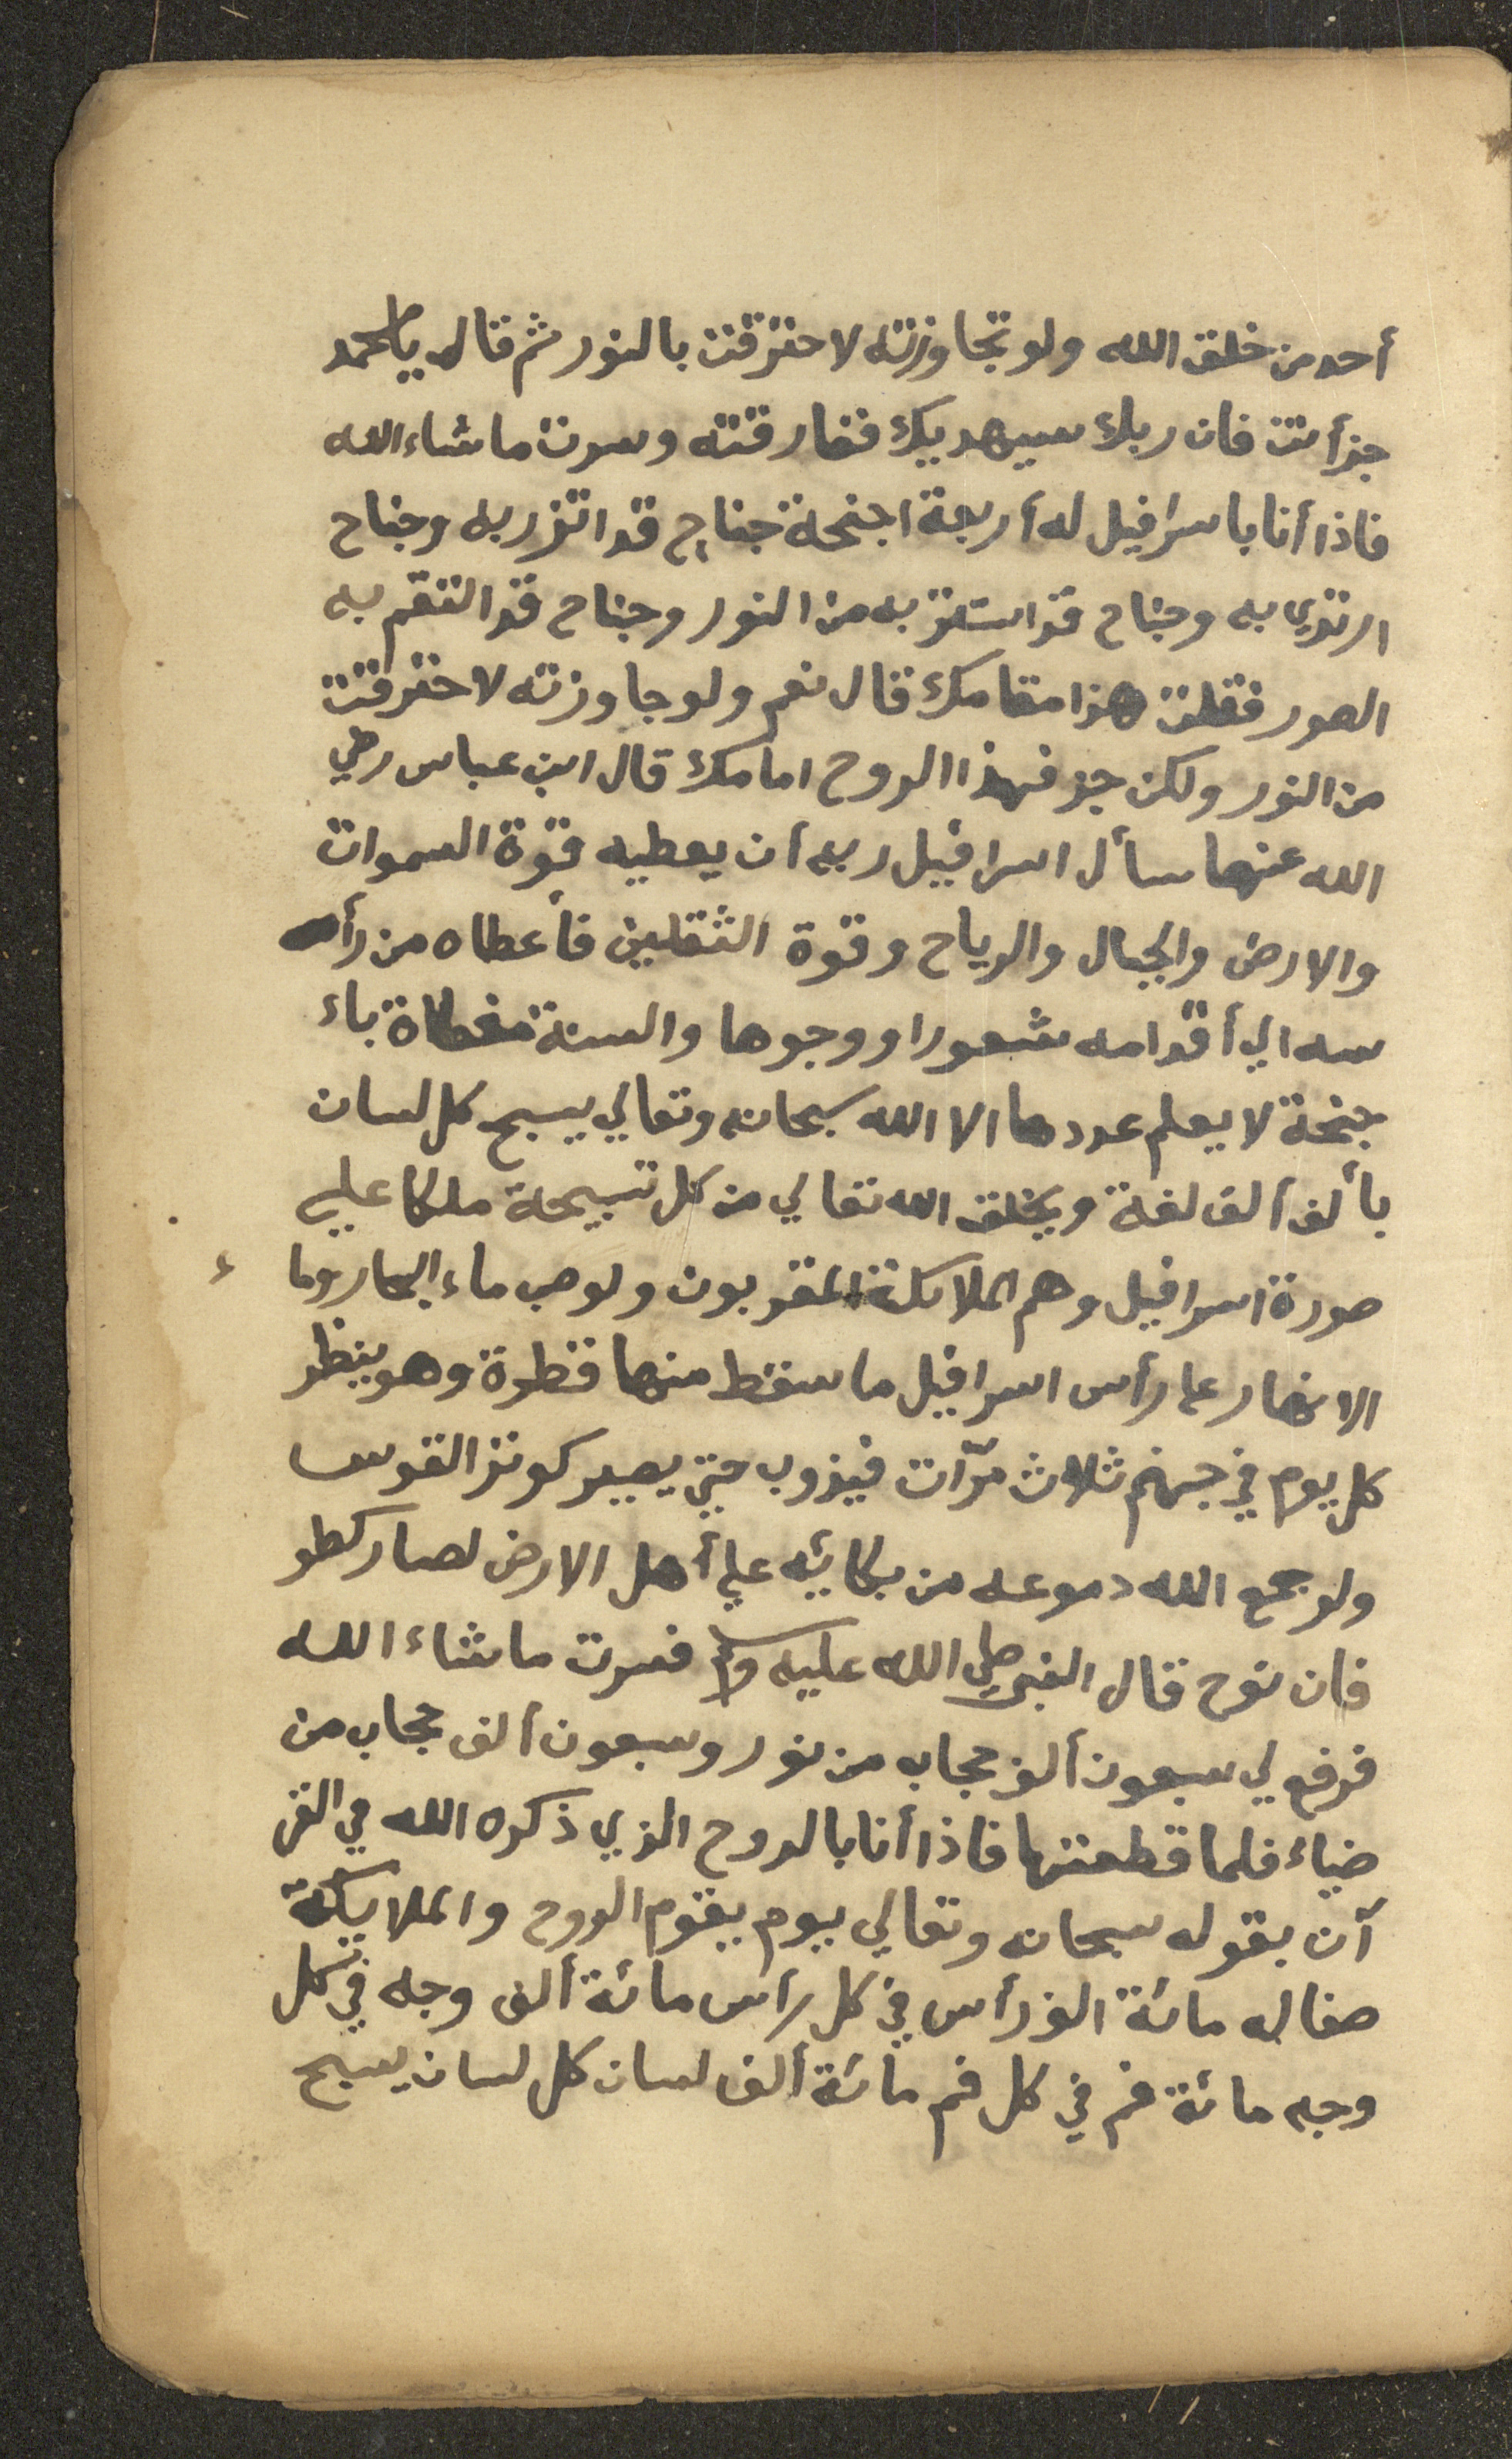 أحد من خلق الله ولو تجاوزته لاحترقت بالنور ثم قال يا محمد
جز أنت فان ربك سيهديك ففارقته وسرت ما شاء الله
فاذا أنا باسرافيل له أربعة اجنحة جناح قد اتزر به وجناح
ارتدي به وجناح قد استتر به من النور وجناح قد التقم به
الصور فقلت هذا مقامك قال نعم ولو جاوزته لاحترقت
من النور ولكن جز فهذا الروح امامك قال ابن عباس رضي
الله عنهما سأل اسرافيل ربه أن يعطيه قوة السموات
والارض والجبال والرياح وقوة الثقلين فأعطاه من رأ
سه الي أقدامه شعورا ووجوها والسنة مغطاة باء
جنحة لا يعلم عددها الا الله سبحانه وتعالي يسبح كل لسان
بألف ألف لغة ويخلق الله تعالي من كل تسبيحة ملكا علي
صورة اسرافيل وهم الملائكة المقربون ولو صب ماء البحار وماء
الانهار علا رأس اسرافيل ما سقط منها قطرة وهو ينظر
كل يوم في جهنم ثلاث مرّات فيذوب حتي يصير كوتر القوس
ولو جمع الله دموعه من بكائه علي أهل الارض لصار كطو
فان نوح قال النبي صلي الله عليه وسلم فسرت ما شاء الله
فرفع لي سبعون ألف حجاب من نور وسبعون ألف حجاب من
ضياء فلما قطعتها فاذا أنا بالروح الذي ذكره الله في القر
آن بقوله سبحانه وتعالي يوم يقوم الروح والملايكة
صفا له مائة الف رأس في كل رأس مائة ألف وجه في كل
وجه مائة فم في كل فم مائة ألف لسان كل لسان يسبح